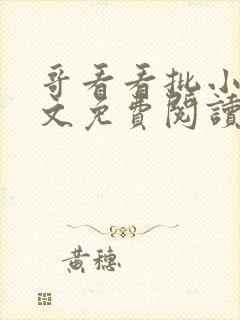 哥看看批小
文免費閱讀
黃穗